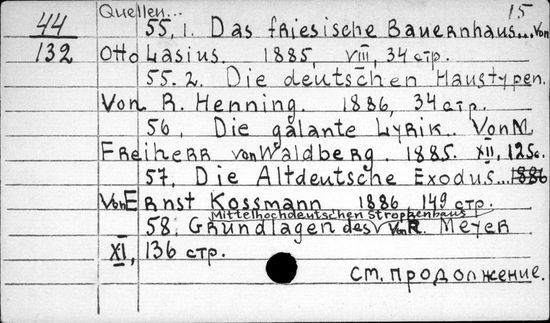 Quellen... 15
44 55, 1. Das friesische Bauernhaus... Von
132 Otto Lasius. 1885, VIII, 34 стр.
55. 2. Die deutschen Haustypen.
Von R. Henning. 1886, 34 стр.
56. Die galante Lyrik.. Von M.
Freiherr von Waldberg. 1885. XII, 125 с.
57, Die Altdeutsche Exodus... 1886
Von Ernst Kossmann 1886, 149 стр.
Mittelhochdeutschen Strophenbaus
58. Grundlagen des Von R. Meyer
XI, 136 стр.
см. продолжение.